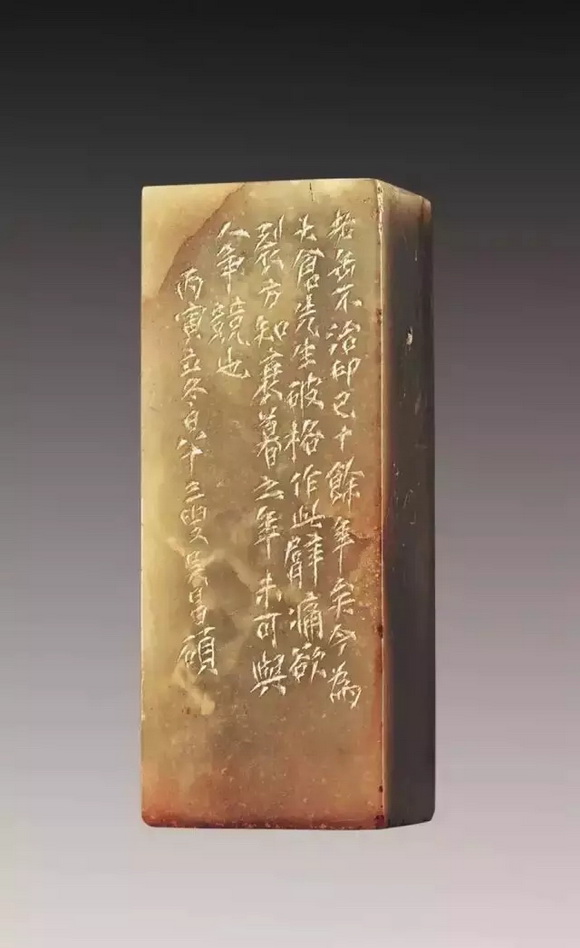 老缶不治印已十餘年矣今為
大倉先生破格作此臂痛欲
裂方知衰暮之年未可與
人爭競也
丙寅立冬白午三叟吳昌碩